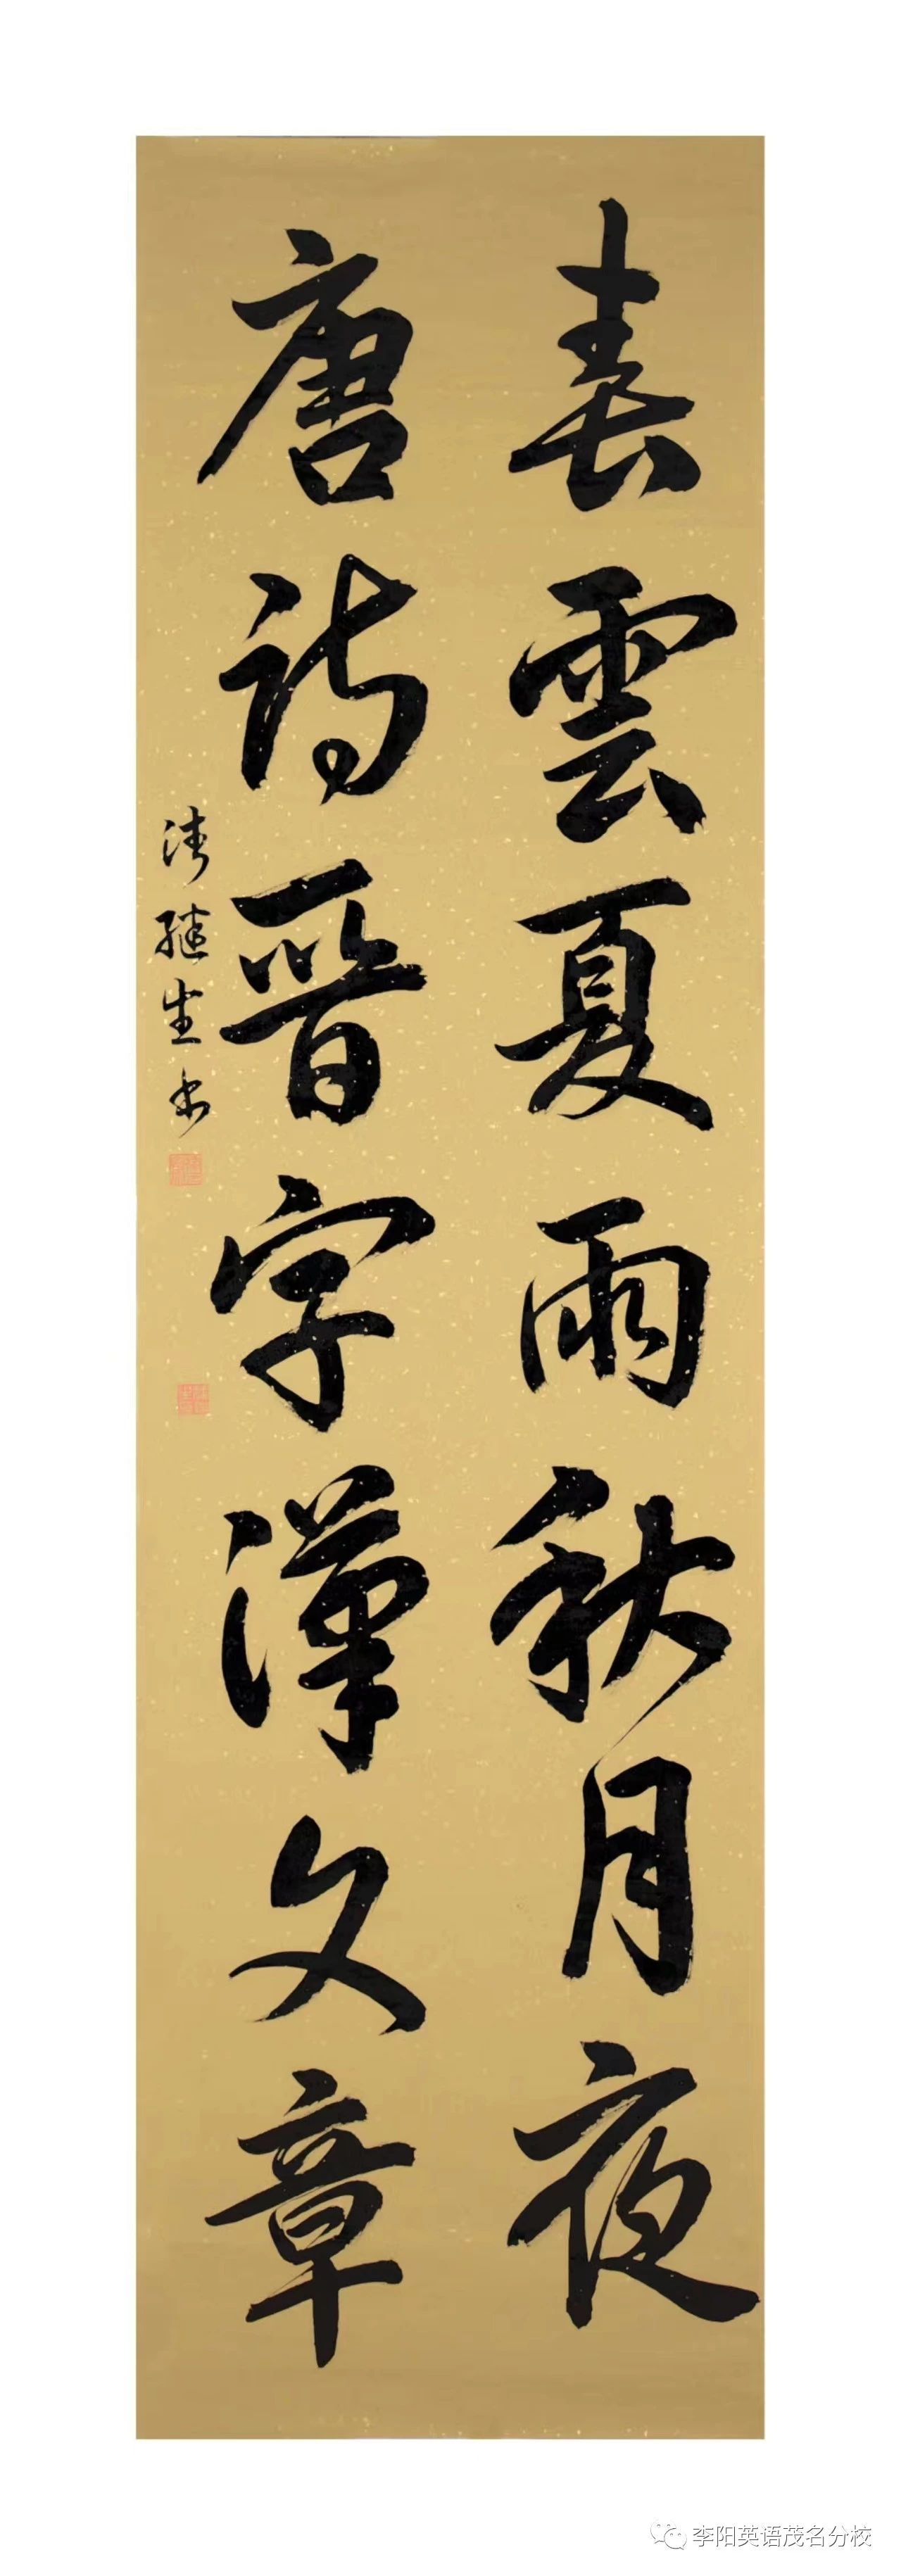 春雲夏雨秋月夜
唐詩晉字漢文章
继生书
李阳英语茂名分校